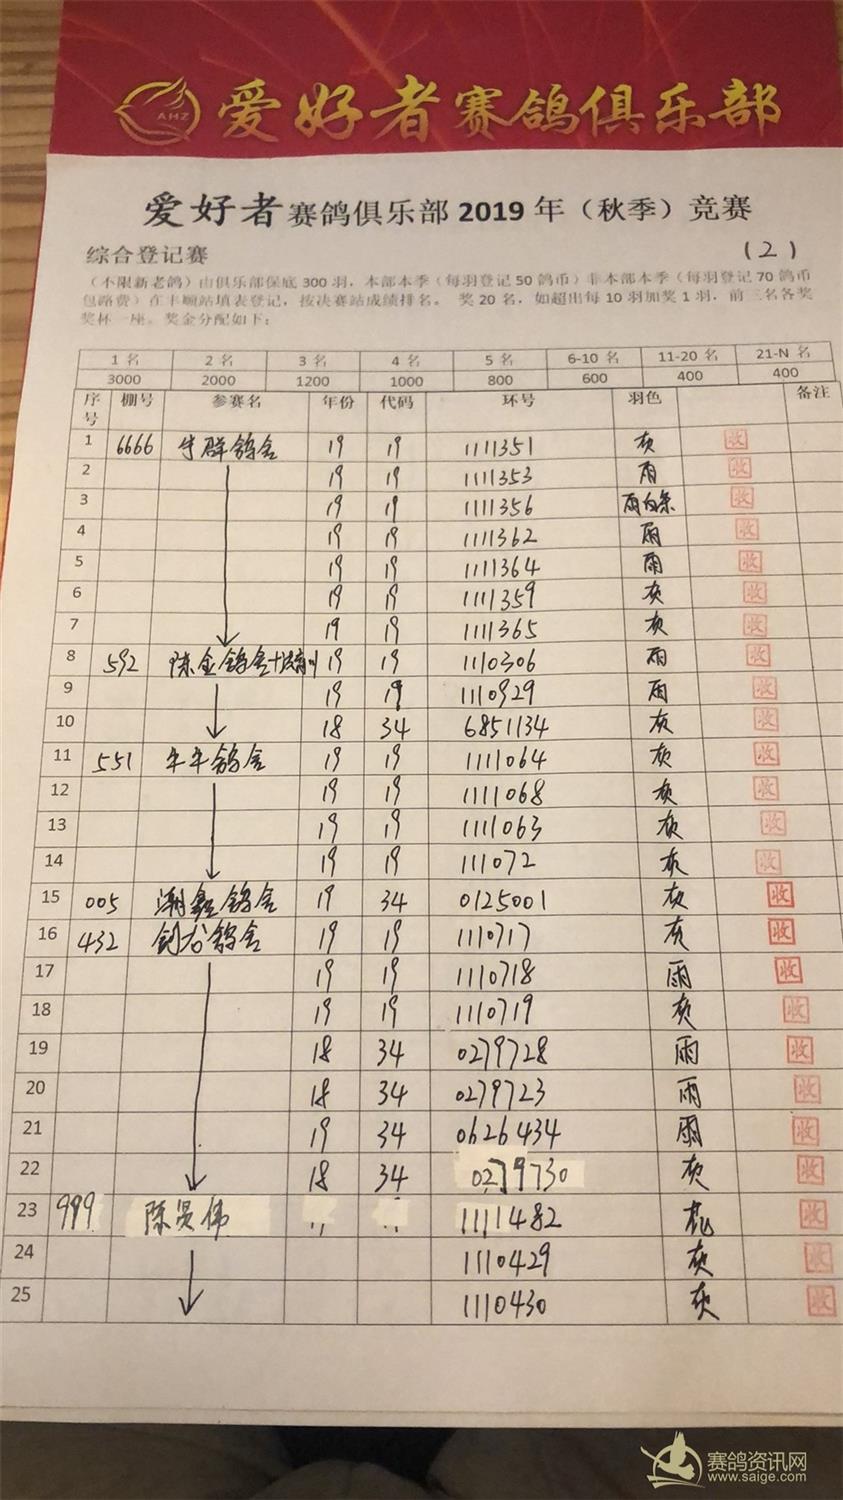 AHZ 爱好者赛鸽俱乐部
爱好者赛鸽俱乐部2019年（秋季）竞赛
综合登记赛 (2)
（不限新老鸽）由俱乐部保底300羽，本部本季（每羽登记50鸽币）非本部本季（每羽登记70鸽币
包路费）在丰顺站填表登记，按决赛站成绩排名。 奖20名，如超出每10羽加奖1羽，前三名各奖
奖杯一座。奖金分配如下：
1名 2名 3名 4名 5名 6-10名 11-20名 21-N名
3000 2000 1200 1000 800 600 400 400
序号 棚号 参赛名 年份 代码 环号 羽色 备注
1 6666 牛群鸽舍 19 19 1111351 灰 收
2 19 19 1111353 雨 收
3 19 19 1111356 雨白条 收
4 19 19 1111362 雨 收
5 19 19 1111364 雨 收
6 19 19 1111359 灰 收
7 19 19 1111365 灰 收
8 592 陈金鸽舍 19 19 1110306 雨 收
9 19 19 1110929 雨 收
10 18 34 6851134 灰 收
11 551 牛牛鸽舍 19 19 1111064 灰 收
12 19 19 1111068 灰 收
13 19 19 1111063 灰 收
14 19 19 111072 灰 收
15 005 潮鑫鸽舍 19 34 0125001 灰 收
16 432 剑龙鸽舍 19 19 1110717 灰 收
17 19 19 1110718 雨 收
18 19 19 1110719 灰 收
19 18 34 0279728 雨 收
20 18 34 0279723 雨 收
21 19 34 0626434 雨 收
22 18 34 0279730 灰 收
23 999 陈 伟 〃 〃 1111482 花 收
24 1110429 灰 收
25 1110430 灰 收
赛鸽资讯网
www.saige.com